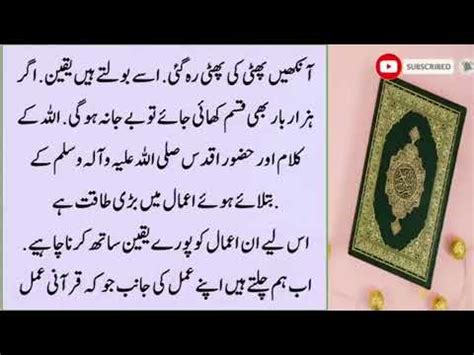 آنکھیں پھٹی کی پھٹی رہ گئی. اسے بولتے ہیں یقین. اگر
ہزار بار بھی قسم کھائی جائے تو بے جانہ ہوگی. اللہ کے
کلام اور حضور اقدس صلی اللہ علیہ وآلہ وسلم کے
بتلائے ہوئے اعمال میں بڑی طاقت ہے.
اس لیے ان اعمال کو پورے یقین ساتھ کرنا چاہیے.
اب ہم چلتے ہیں اپنے عمل کی جانب جو کہ قرآنی عمل
SUBSCRIBED